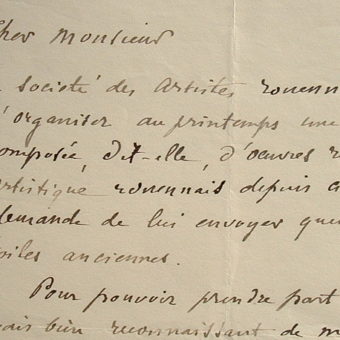 Cher Monsieur
société des Artistes rouenn
d'organiser au printemps une
composée, dit-elle, d'oeuvres r
artistique rouennais depuis
demande de lui envoyer quel
toiles anciennes.
Pour pouvoir prendre part
bien reconnaissant de m